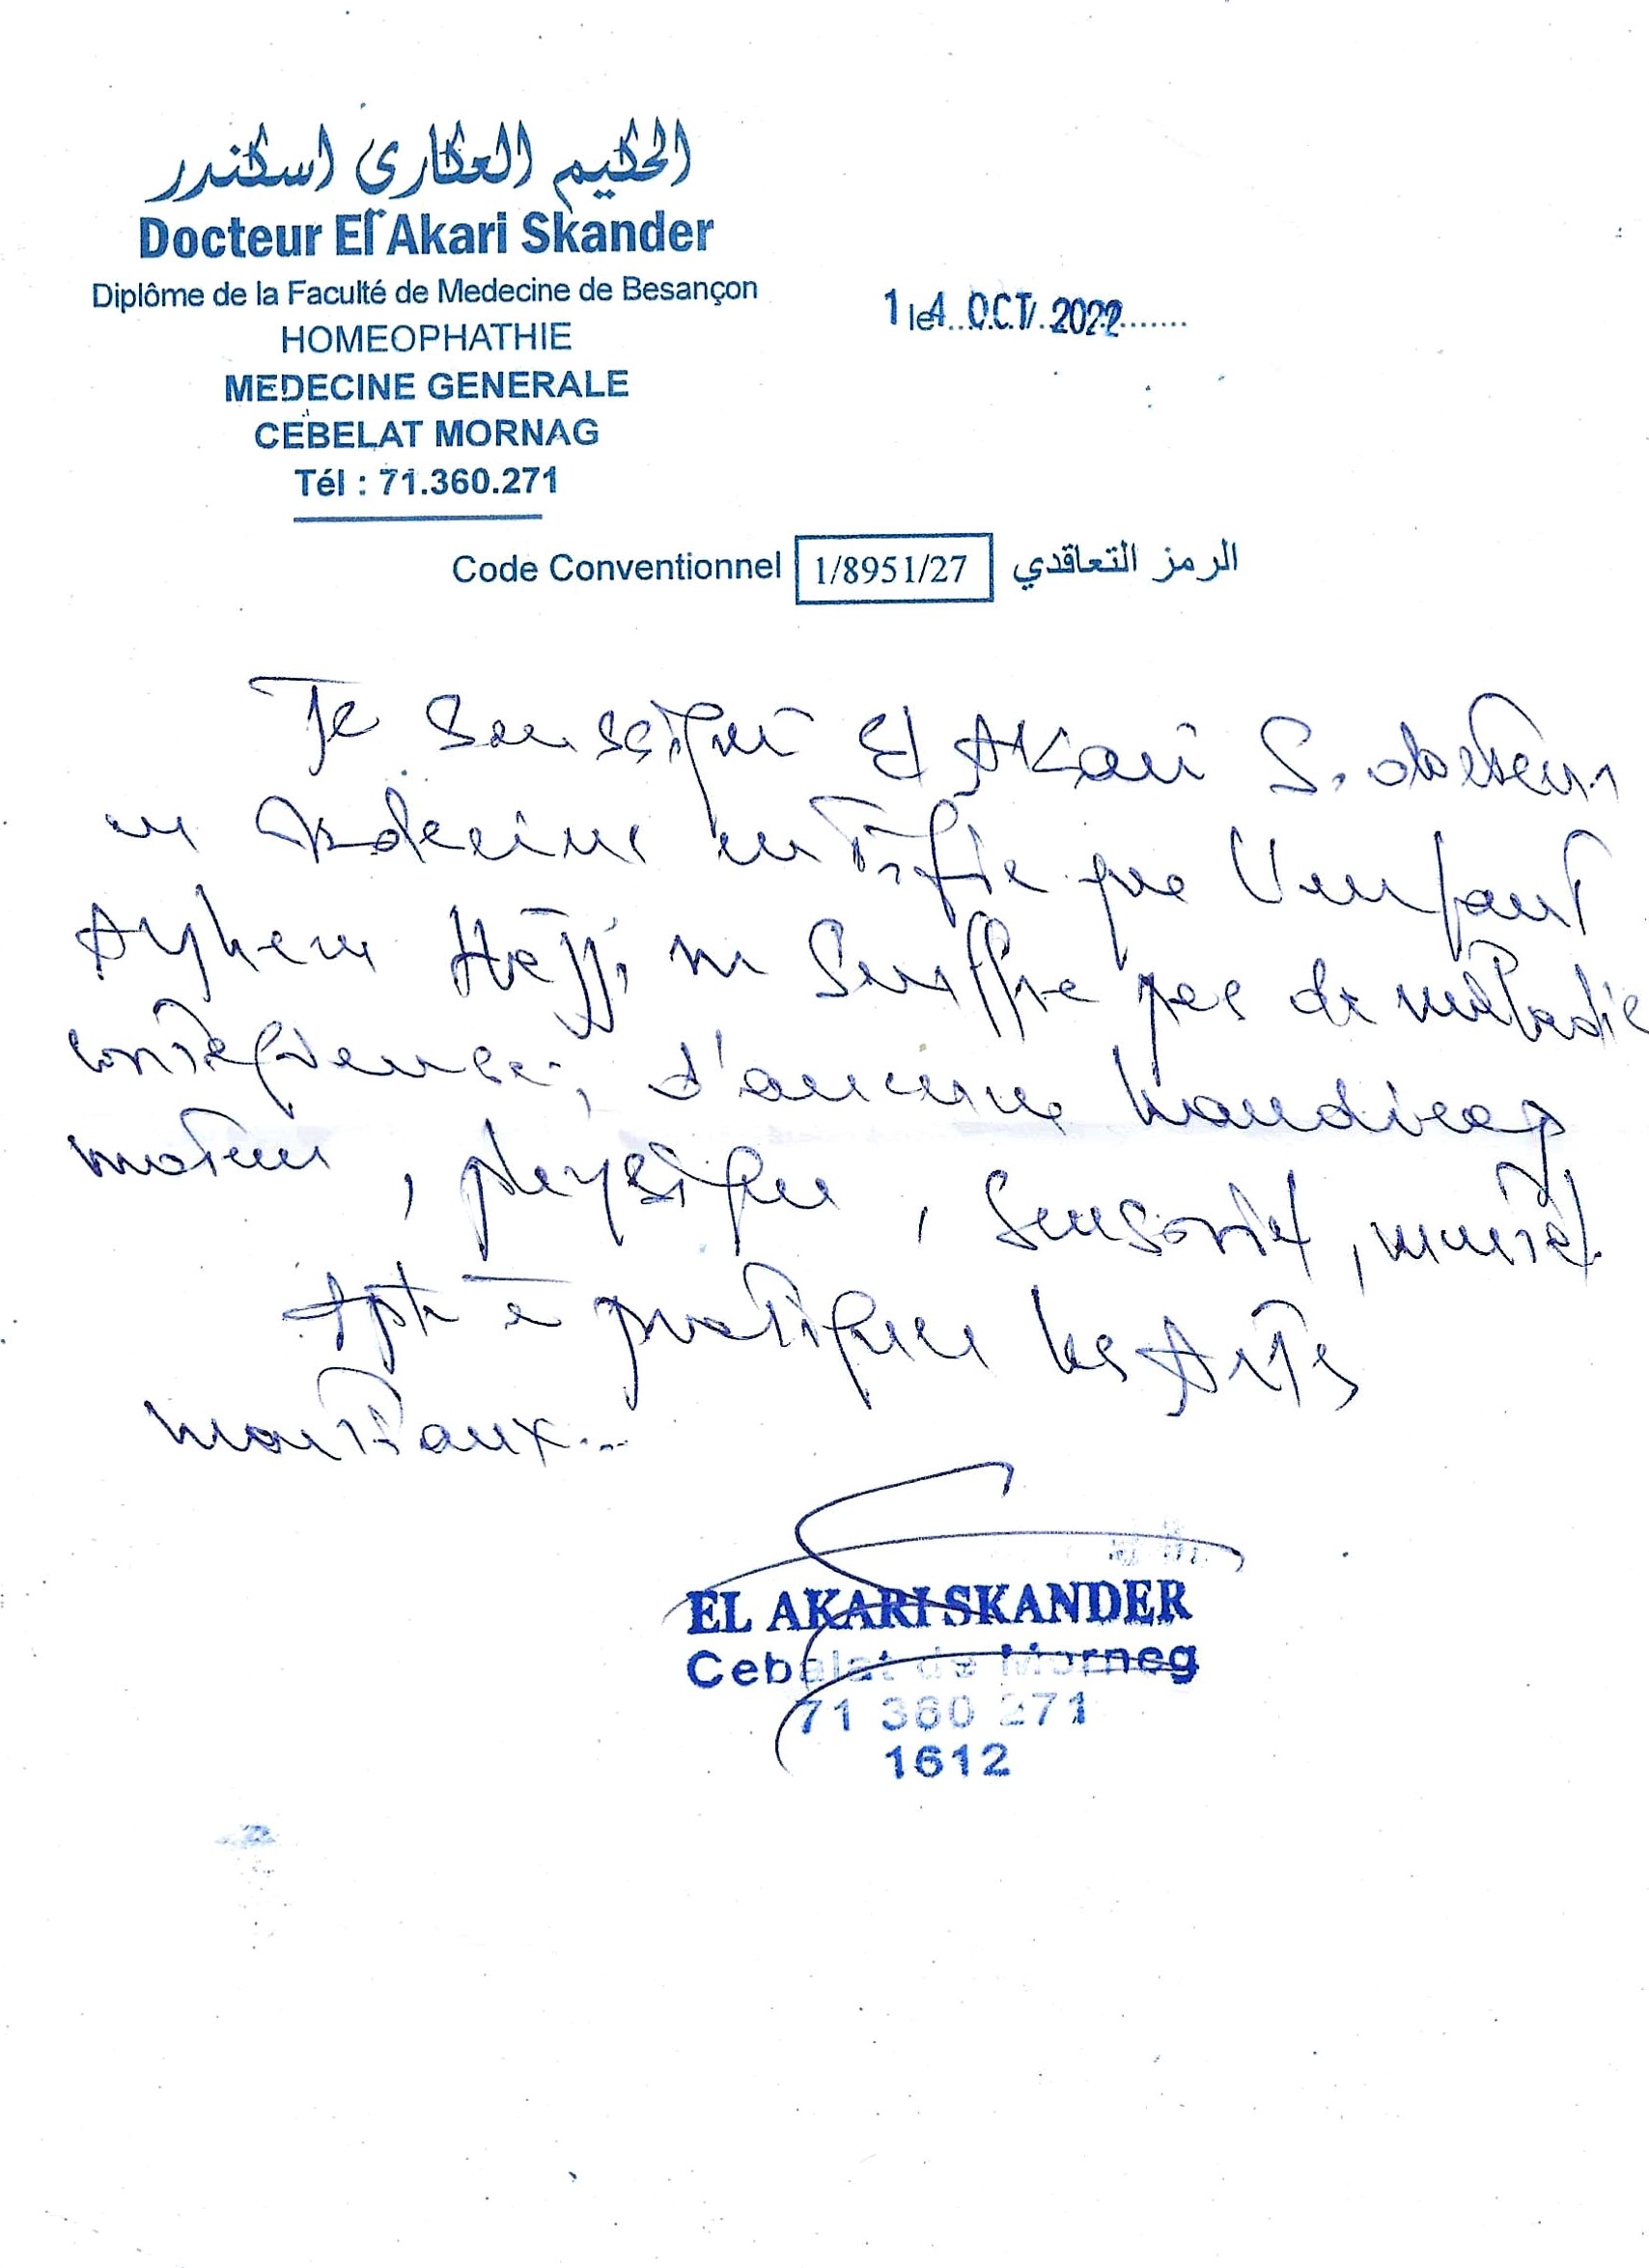 الحكيم العكاري اسكندر
Docteur El Akari Skander
Diplôme de la Faculté de Medecine de Besançon
HOMEOPHATHIE
MEDECINE GENERALE
CEBELAT MORNAG
Tél : 71.360.271
le 14 OCT. 2022
Code Conventionnel 1/8951/27 الرمز التعاقدي
Je soussigné El Akari S. docteur
en Medecine certifie que l'enfant
Hajji ne souffre pas de maladie
contagieuse, d'aucune handicap
moteur, physique, sensoriel, mental
Apte à pratiquer les Arts
martiaux...
EL AKARI SKANDER
Cebalat de Morneg
71 360 271
1612